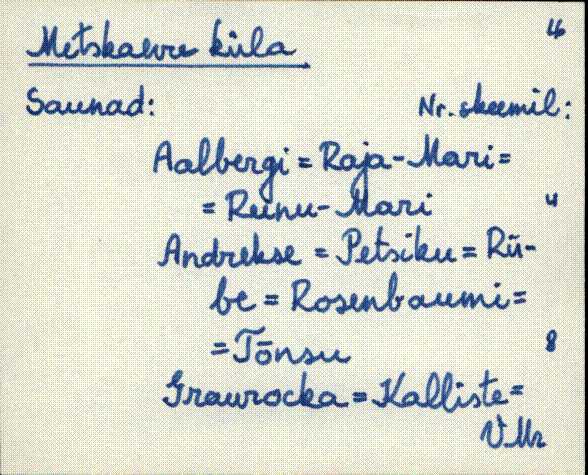 46
Metskaevu küla
Saunad: Nr. skeemil:
Aalbergi = Raja-Mari =
= Reinu-Mari 4
Andrekse = Petsiku = Rü-
be = Rosenbaumi =
= Tõnsu 8
Graurocka = Kalliste =